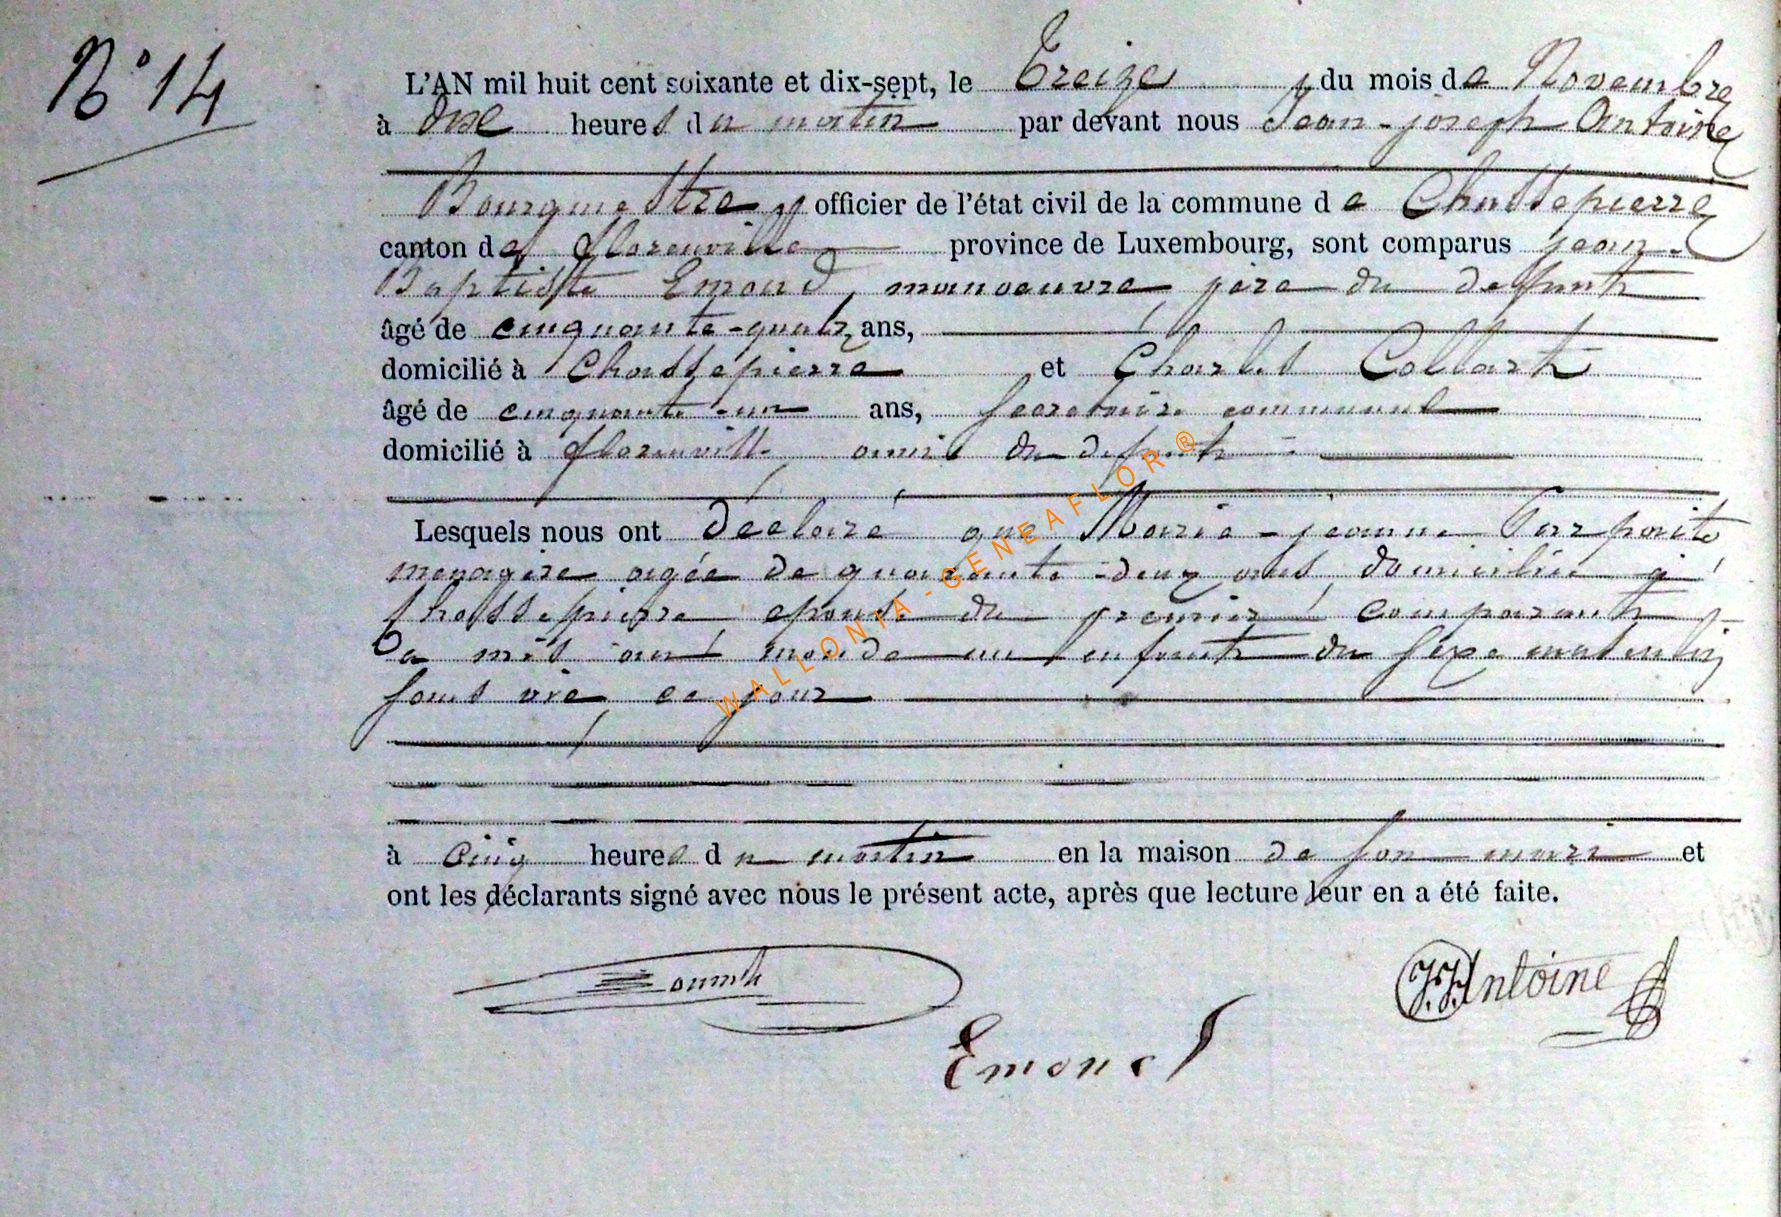 N° 14
L'AN mil huit cent soixante et dix-sept, le Treize du mois de Novembre
à onse heures du matin par devant nous Jean-joseph Antoine
Bourgmestre officier de l'état civil de la commune de Chassepierre
canton de florenville province de Luxembourg, sont comparus jean-
Baptiste Emond, manoeuvre père du defunt
âgé de cinquante-quatr ans,
domicilié à Chassepierre et Charles Collart
âgé de cinquante-un ans, secretaire communal
domicilié à florenville, ami du defunt
Lesquels nous ont déclaré que Maria-jeanne Parpaite
menagère agée de quarante-deux ans domiciliée à
Chassepierre epouse du premier comparant
a mis au monde un enfant du sexe masculin
sans vie ce jour
à cinq heures du matin en la maison de son mari et
ont les déclarants signé avec nous le présent acte, après que lecture leur en a été faite.
J.J. Antoine
Emond
WALLONIA-GENEAFLOR®